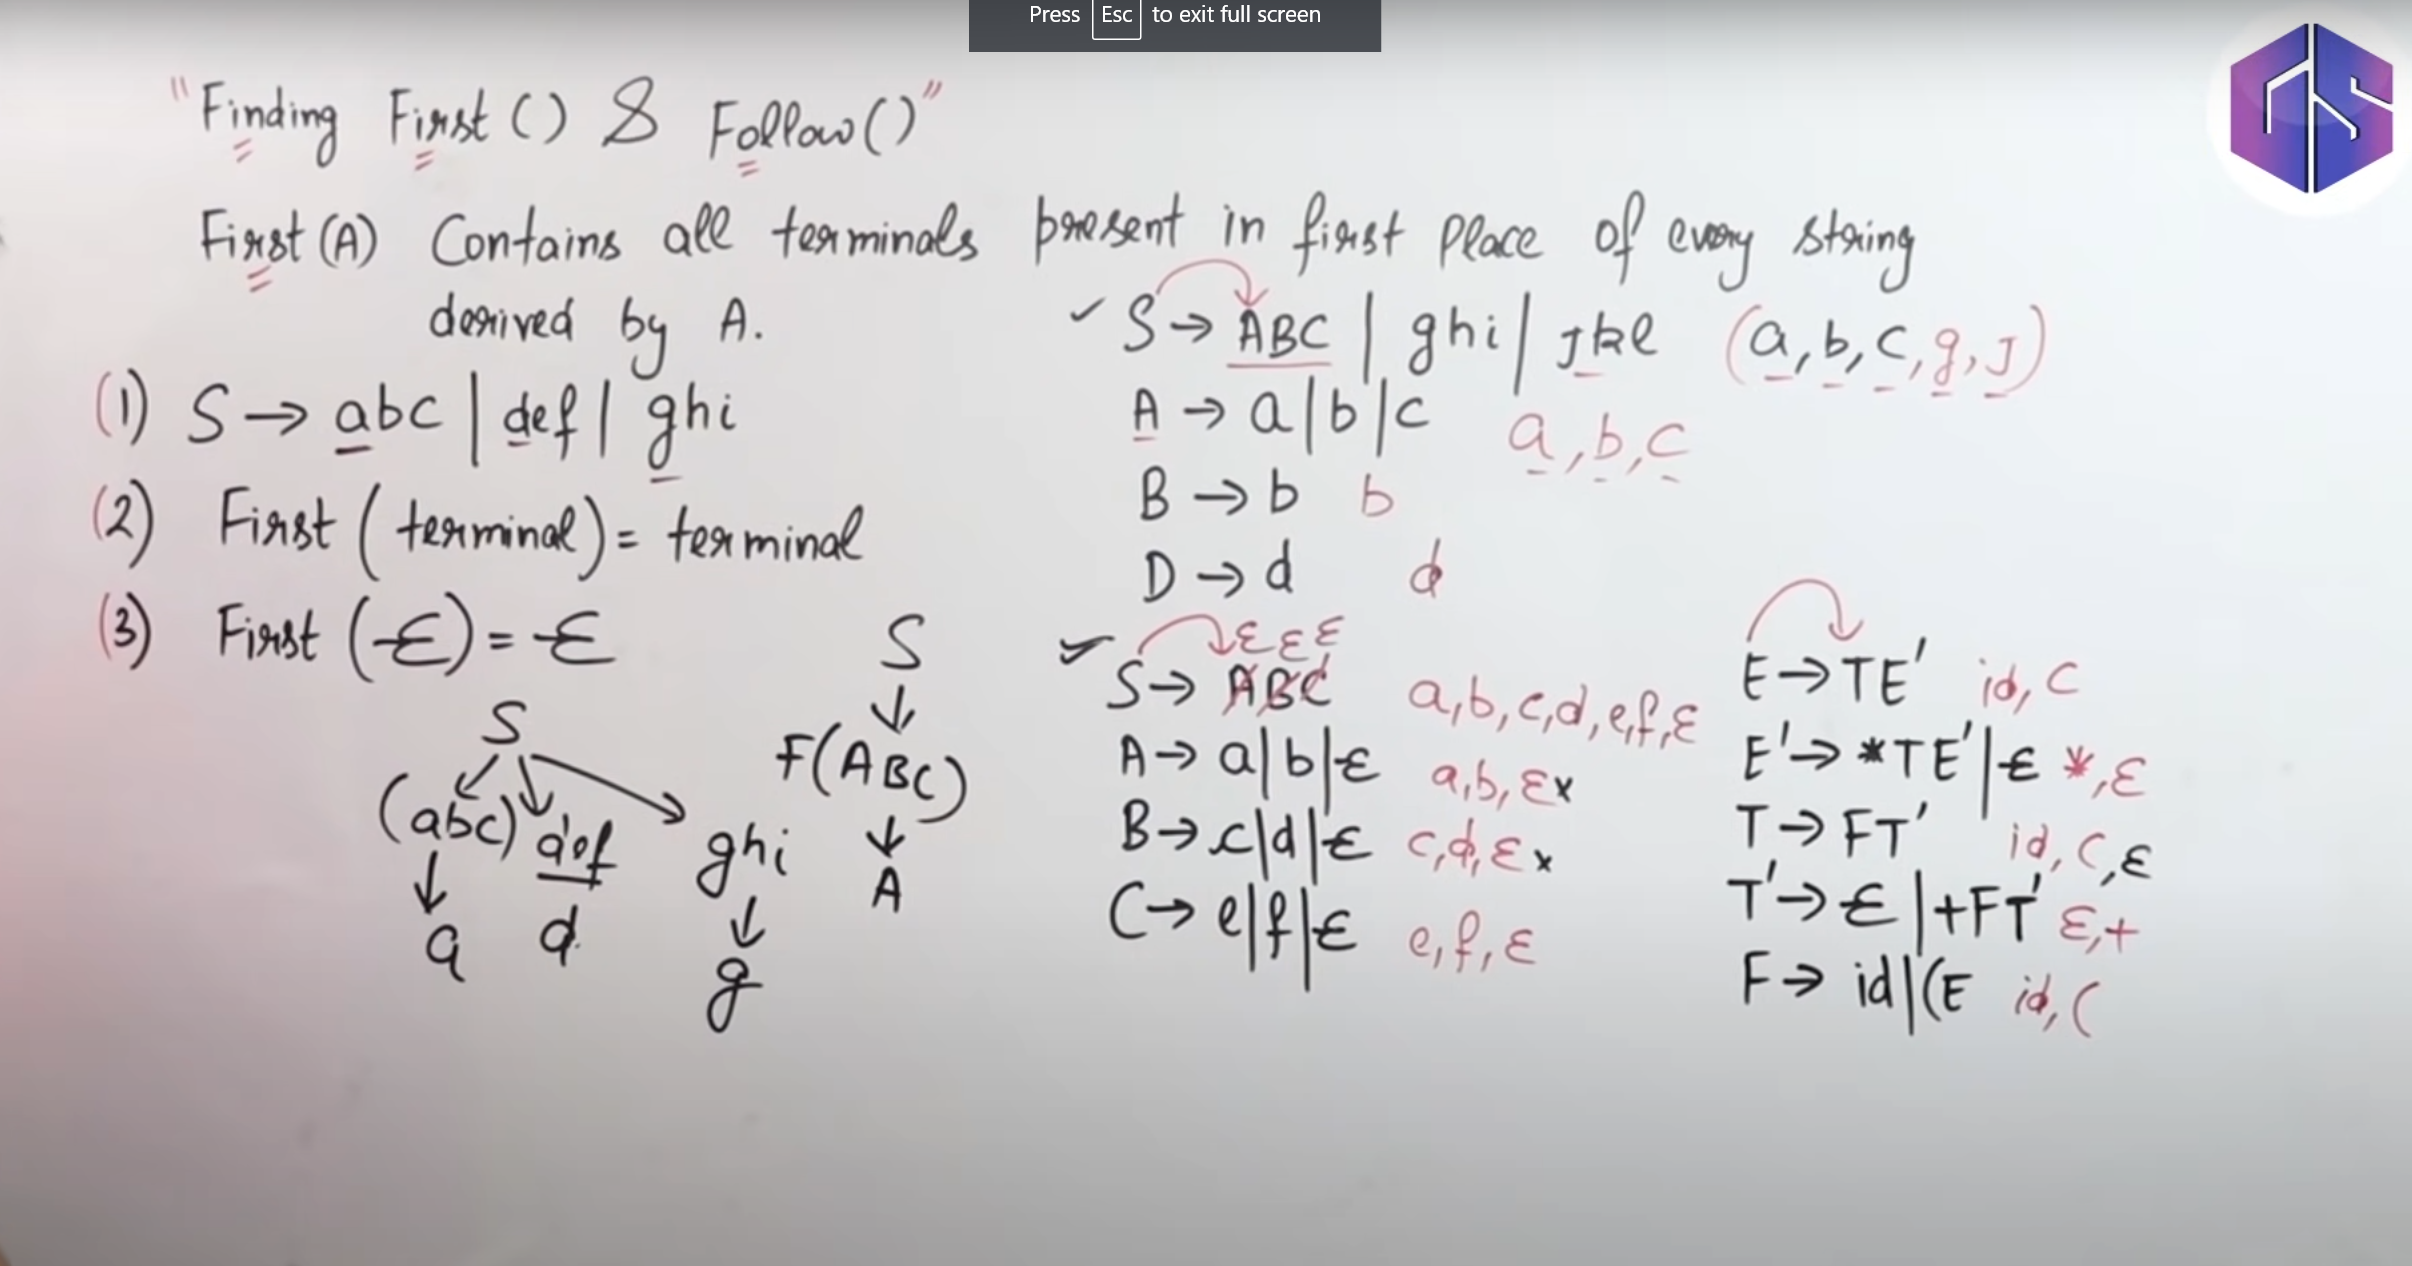 Press Esc to exit full screen
"Finding First() & Follow()"
First(A) Contains all terminals present in first place of every string
derived by A.
(1) S → abc | def | ghi
(2) First (terminal) = terminal
(3) First (Ɛ) = Ɛ
S
(abc) def ghi
a d g
S
F(ABC)
A
✓ S → ABC | ghi | Jkl (a, b, c, g, J)
A → a | b | c a, b, c
B → b b
D → d d
ε ε ε
✓ S → ABC a, b, c, d, e, f, ε
A → a | b | Ɛ a, b, ε x
B → c | d | Ɛ c, d, ε x
C → e | f | Ɛ e, f, ε
E → TE' id, (
E' → *TE' | Ɛ *, ε
T → FT' id, (, ε
T' → Ɛ | +FT' ε, +
F → id | (E id, (